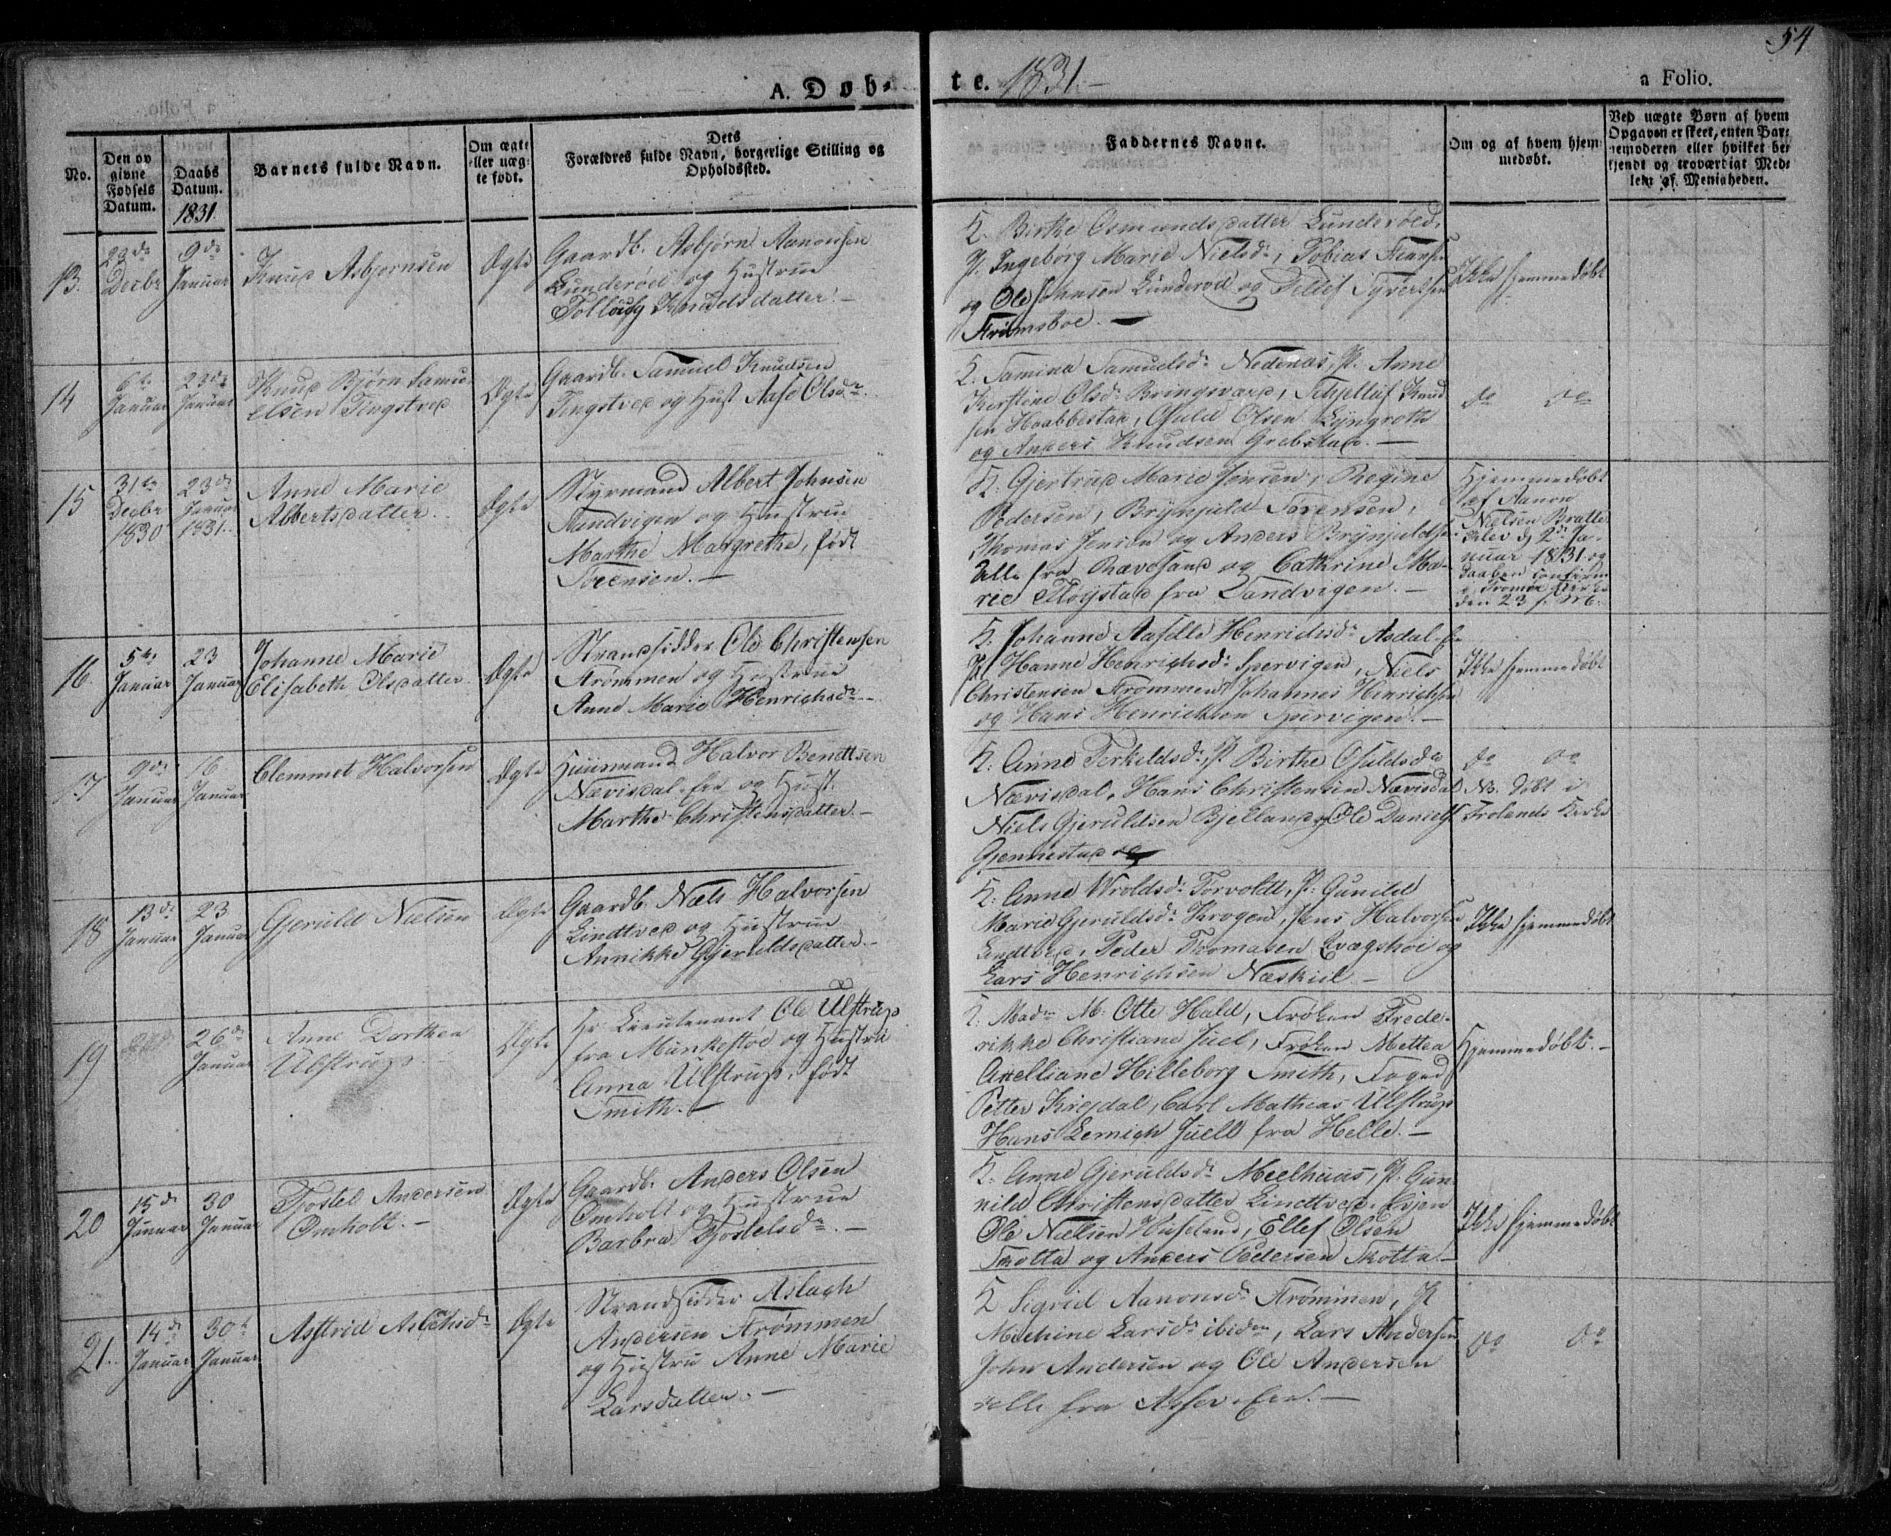 54
A. Døb-
te. 1831.
a Folio.
No.
Den op
givne
Fødsels
Datum.
Daabs
Datum.
1831.
Barnets fulde Navn.
Om ægte
eller uæg-
te født.
Dets
Forældres fulde Navn, borgerlige Stilling og
Opholdssted.
Faddernes Navne.
Om og af hvem hjem-
medøbt.
Ved uægte Børn af hvem
Opgaven er skeet, enten Bar-
nemoderen eller hvilket be-
kjendt og troværdigt Med-
lem af Menigheden.
13.
23de
Decbr
9de
Januar
Knud Asbjørnsen
Ægte
Gaardb. Asbjørn Aanonsen
Lunderød og Hustrue
Tollaug Knudsdatter. —
K. Birthe Osmundsdatter Lunderød,
P. Ingeborg Marie Nielsd., Tobias
og Ole Johnsen Lunderød og Detlef Syvertsen
Strømsboe. —
Ikke hjemmedøbt
14
6te
Januar
23de
Januar
Knud Bjørn Samu
elsen Tingstved
Ægte
Gaardb. Samuel Knudsen
Tingstved og Hust Aase Olsdr.
K. Tamina Samuelsdr Nedenæs, P. Anne
Kirstine Olsdr Bringsværd, Schjelluf Knud
sen Haabbestad, Osuld Olsen Lyngroth
og Anders Knudsen Grebstad. —
do do
15
31te
Decbr
1830
23de
Januar
1831.
Anne Marie
Albertsdatter.
Ægte
Styrmand Albert Johnsen
Sandvigen og Hustru
Marthe Margrethe, født
Sørensen. —
K. Gjertrud Marie Jensen, Regine
Pedersen, Brynjuld Sørensen,
Thomas Jensen og Anders Brynjuldsen
alle fra Rævesand og Cathrine Ma-
rie Fløystad fra Sandvigen. —
Hjemmedøbt
af Aanon
Nielsen Bratte
klev d. 2de Ja-
nuar 1831 og
Daaben confirm
i Tromøe Kirke
den 23 s. M.
16.
5te
Januar
23
Januar
Johanne Marie
Elisabeth Olsdatter
Ægte
Strandsidder Ole Christensen
Strømmen og Hustrue
Anne Marie Henrichsdr —
K. Johanne Aaselle Henrichsdr Asdal-E.
P. Hanne Henrichsdr Spervigen, Niels
Christensen Strømmen, Johannes Henrichsen
og Hans Henrichsen Spervigen. —
Ikke hjemmedøbt
17
9de
Januar
16
Januar
Clemmet Halvorsen
Ægte
Huusmand Halvor Bentsen
Nævisdal-Eie og Hust.
Marthe Christensdatter. —
K. Anne Terkeldsdr, P. Birthe Osuldsdr
Nævisdal, Hans Christensen Nævisdal
Niels Gjeruldsen Bjelland og Ole Danielsen
Gjennestad
do do
NB. døbt i
Frolands Kirke
18
13de
Januar
23
Januar
Gjeruld Nielsen
Ægte
Gaardb. Niels Halvorsen
Lindtved og Hustrue
Annikke Gjeruldsdatter —
K. Anne Wroldsdr Torvoldt, P. Gunild
Marie Gjeruldsdr Krogen, Jens Halvorsen
Lindtved, Peder Thomasen Lvægshei og
Lars Henrichsen Næskiil —
Ikke hjemmedøbt
19
26de
Januar
Anne Dorthea
Ulstrup.
Ægte
Hr Lieutenant Ole Ulstrup
fra Munkestød og Hustru
Anna Ulstrup, født
Smith. —
K. Madm M. Otte Hald, Frøken Frede-
rikke Christiane Juel, Frøken Mettea
Axelliane Hilleborg Smith, Foged
Petter Krejdal, Carl Mathias Ulstrup
Hans Lemich Juell fra Helle. —
Hjemmedøbt. —
20
15de
Januar
30
Januar
Tjostel Andersen
Omholt. —
Ægte
Gaardb. Anders Olsen
Omholt og Hustrue
Barbra Tjostelsdr. —
K. Anne Gjeruldsdr Meelhuus, P. Gun-
nild Christensdatter Lindtved-Eien
Ole Nielsen Huseland, Ellef Olsen
Skotta og Anders Pedersen Skotta —
Ikke hjemmedøbt
21.
14de
Januar
30t
Januar
Asstrid Aslachsdr
Ægte
Strandsidder Aslach
Andersen Strømmen
og Hustru Anne Marie
Larsdatter. —
K Sigrid Aanonsdr Strømmen, P.
Mechine Larsdr ibidm, Lars Andersen
John Andersen og Ole Andersen
alle fra Eie. —
do do